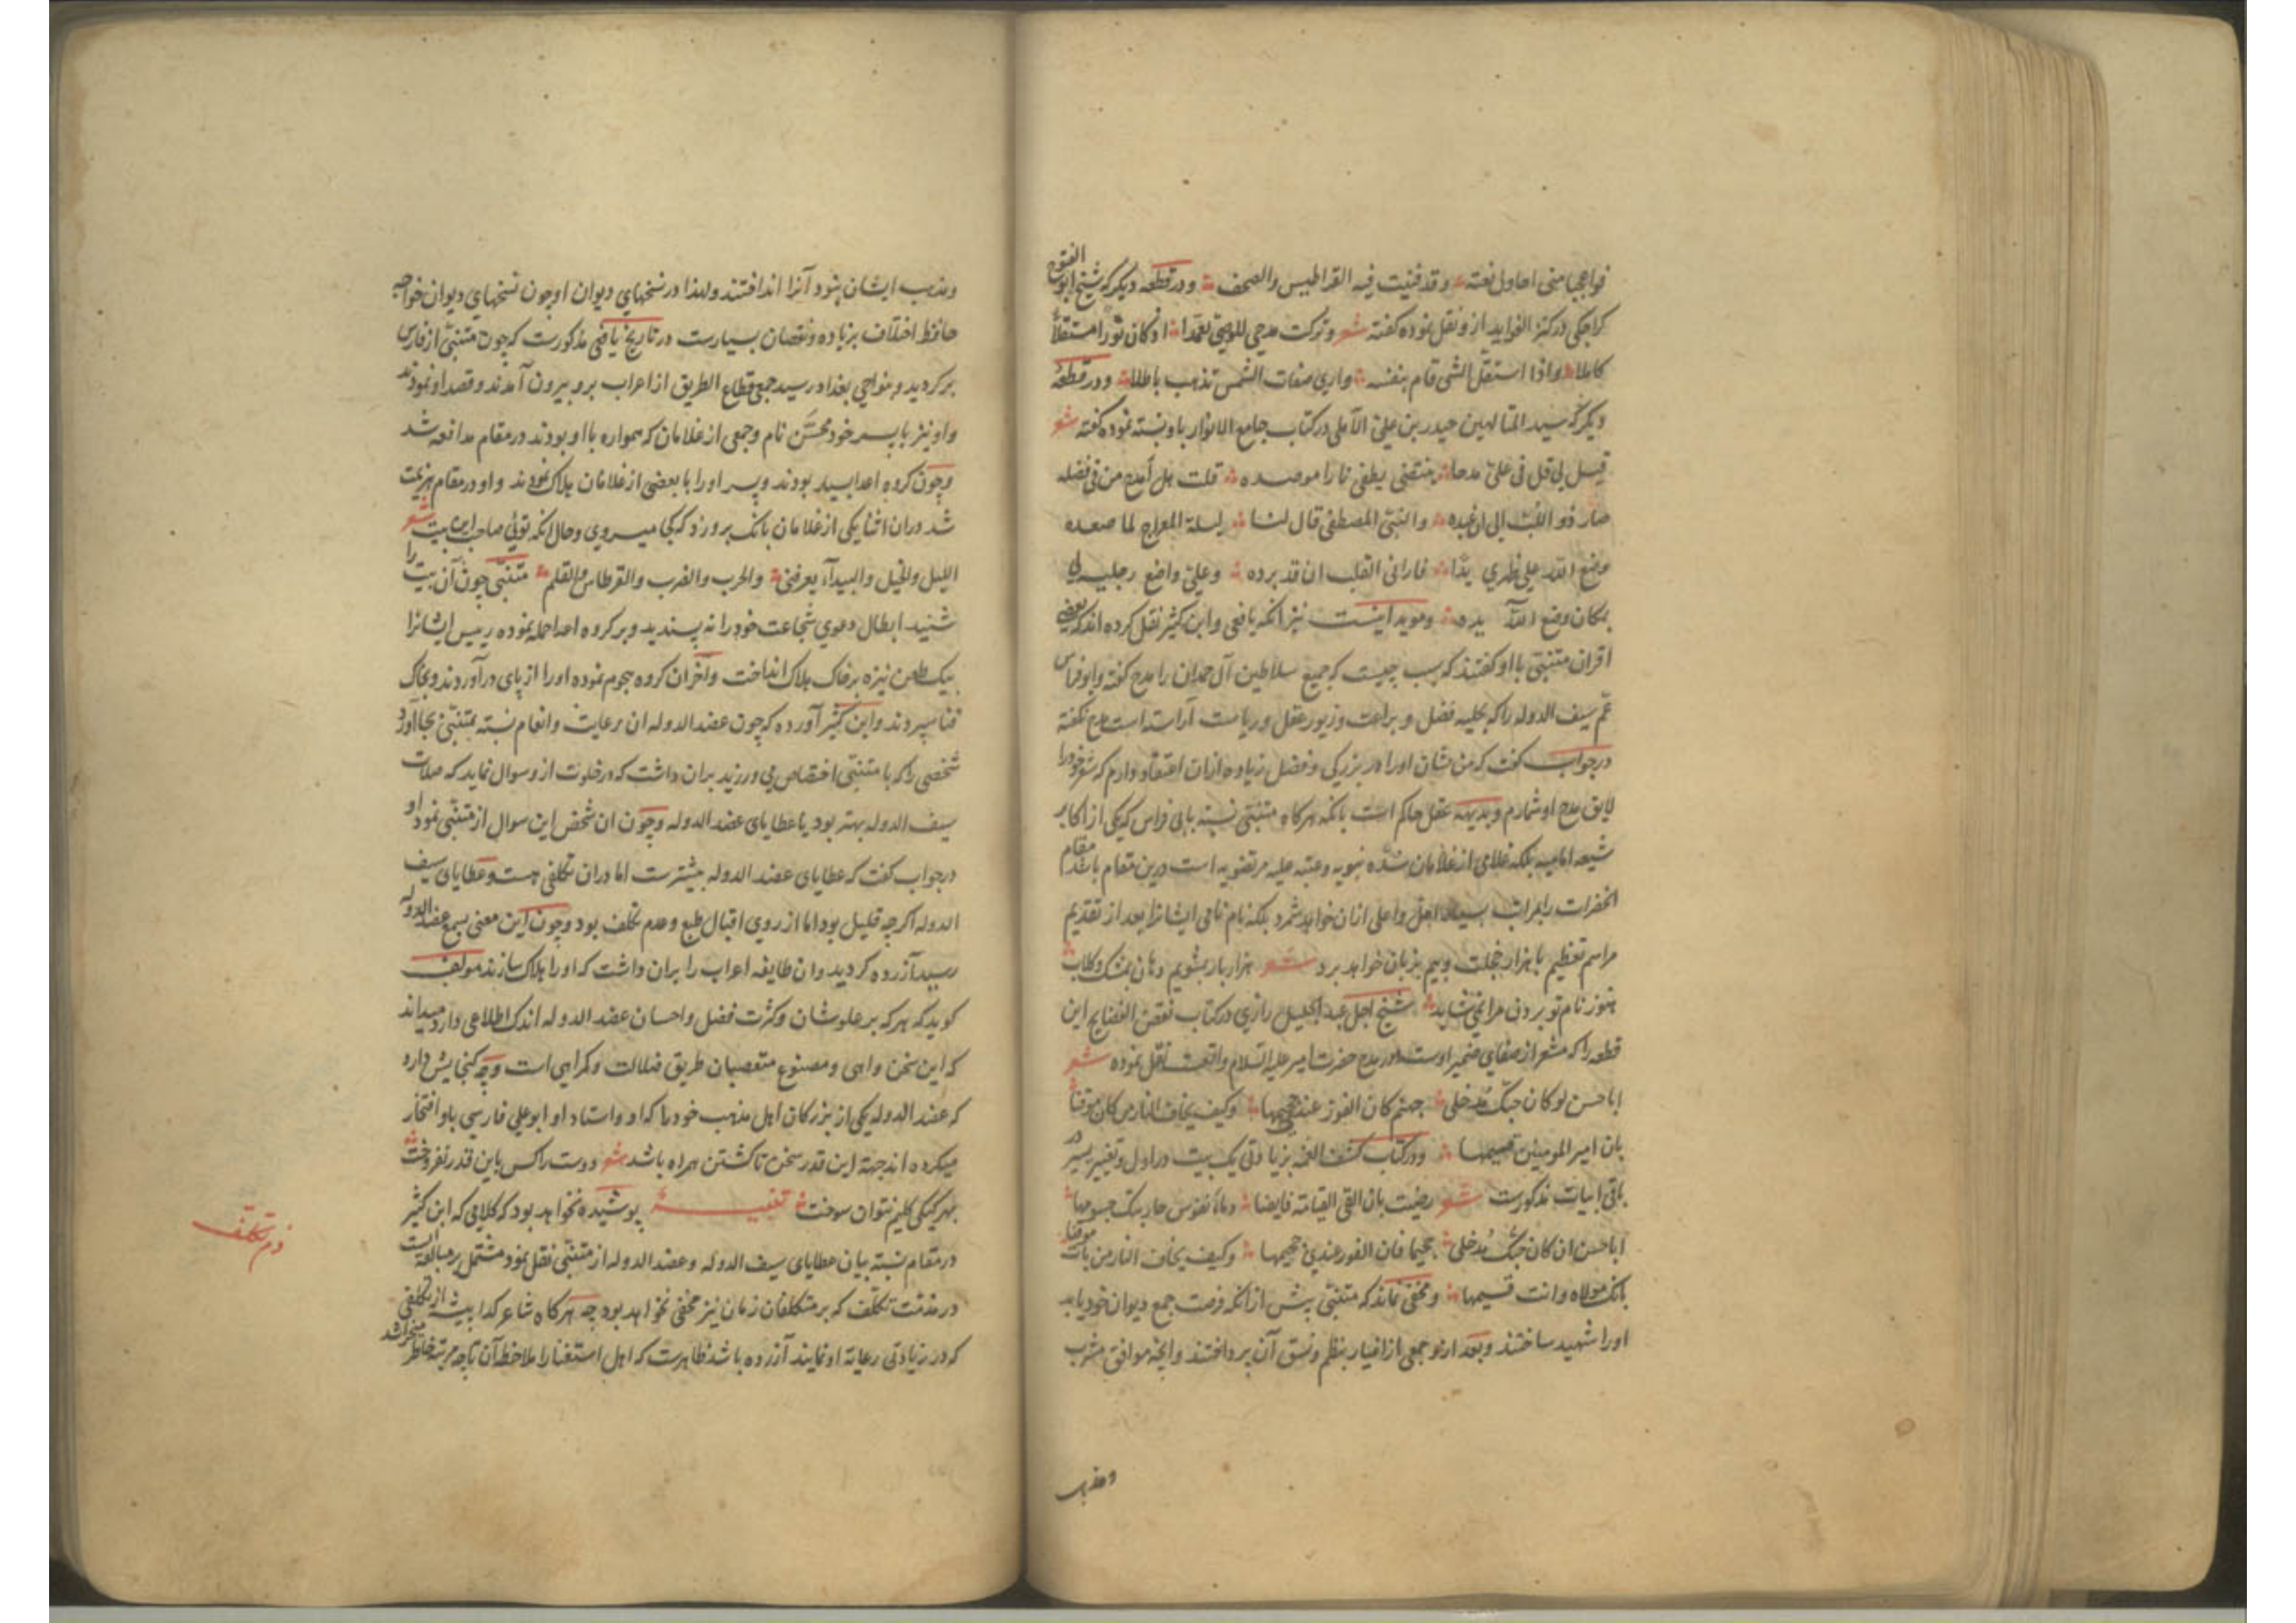 فواعجبا منی احاول نعته وقد فنیت فیه القراطیس والصحف ودر قطعه دیگر که شیخ ابو الفتوح
کراجکی در کنز الفواید از و نقل نموده گفته شعر وترکت مدحی للوصی تعمدا اذ کان نورا مستقلا
کاملا واذا استقل الشی قام بنفسه واری صفات الشمس تذهب باطلا ودر قطعه
دیگر که سید المتالهین حیدر بن علی الآملی در کتاب جامع الانوار باو نسبته نموده گفته شعر
قیل لی قل فی علی مدحا ینتضی یطفی نارا موصده قلت هل أمدح من فی فضله
حار ذو اللب الی ان عبده والنبی المصطفی قال لنا لیلة المعراج لما صعده
وضع الله علی ظهری یدا فارانی القلب ان قد برده وعلی واضع رجلیه لی
بمکان وضع الله یده وموید اینست نیز انکه یافعی وابن کثیر نقل کرده اند که بعضی
اقران متنبی با او گفتند که سبب چیست که جمیع سلاطین آل حمدان را مدح گفته وابو فراس
عم سیف الدوله را که بحلیه فضل و براعت وزیور عقل وریاست آراسته است مدح نگفته
درجواب گفت که من شان اورا در بزرگی وفضل زیاده ازان اعتقاد دارم که شعر خودرا
لایق مدح او شمارم وبدیهه عقل حاکم است بانکه هرگاه متنبی نسبته بابی فراس که یکی از اکابر
شیعه امامیه بلکه غلامی از غلامان سده نبویه وعتبه علیه مرتضویه است درین مقام باشد مقام
انحضرت را بمراتب بسیار اجل واعلی ازان خواهد شمرد بلکه نام نامی ایشانرا بعد از تقدیم
مراسم تعظیم با هزار خجلت وبیم بزبان خواهد برد شعر هزار بار بشویم دهان بمشک وگلاب
هنوز نام تو بردن مرا نمی شاید شیخ اجل عبد الجلیل رازی در کتاب نقض الفضایح این
قطعه را که مشعر از صفای ضمیر اوست ودر مدح حضرت امیر علیه السلام واقعست نقل نموده شعر
ابا حسن لو کان حبک مدخلی جهنم کان الفوز عندی جحیمها وکیف یخاف النار من کان موقنا
بان امیر المومنین قسیمها ودر کتاب کشف الغمه بزیادتی یک بیت در اول وتغییر یسیر در
باقی ابیات مذکورست شعر رضیت بان القی القیامة خایضا دماء نفوس حاربتک جسومها
ابا حسن ان کان حبک مدخلی جحیما فان الفوز عندی جحیمها وکیف یخاف النار من بات موقنا
بانک مولاه وانت قسیمها ومخفی نماند که متنبی پیش ازانکه فرصت جمع دیوان خود یابد
اورا شهید ساختند وبعد ازو جمعی از اغیار بنظم ونسق آن پرداختند وانچه موافق مشرب
ومذهب
ومذهب ایشان نبود آنرا انداختند ولهذا در نسخهای دیوان او چون نسخهای دیوان خواجه
حافظ اختلاف بزیاده ونقصان بسیارست در تاریخ یافعی مذکورست که چون متنبی از فارس
برگردید وبنواحی بغداد رسید جمعی قطاع الطریق از اعراب برو بیرون آمدند وقصد او نمودند
واو نیز با پسر خود محسن نام وجمعی از غلامان که همواره با او بودند در مقام مدافعه شد
وچون گروه اعدا بسیار بودند وپسر اورا با بعضی از غلامان هلاک نمودند واو در مقام هزیمت
شد دران اثنا یکی از غلامان بانگ برو زد که کجا میروی وحال انکه توئی صاحب این بیت شعر
اللیل والخیل والبیدآء یعرفنی والحرب والضرب والقرطاس والقلم متنبی چون آن بیت را
شنید ابطال دعوی شجاعت خودرا نه پسندید وبر گروه اعدا حمله نموده رییس ایشانرا
بیک طعن نیزه برخاک هلاک انداخت وآخران گروه هجوم نموده اورا از پای در آوردند وبخاک
فنا سپردند وابن کثیر آورده که چون عضد الدوله ان رعایت وانعام نسبته بمتنبی بجا آورد
شخصی را که با متنبی اختصاص می ورزید بران داشت که درخلوت ازو سوال نماید که صلات
سیف الدوله بهتر بود یا عطایای عضد الدوله وچون ان شخص این سوال از متنبی نمود او
درجواب گفت که عطایای عضد الدوله بیشترست اما دران تکلفی هست وعطایای سیف
الدوله اگرچه قلیل بود اما از روی اقبال طبع وعدم تکلف بود وچون این معنی بسمع عضد الدوله
رسید آزرده گردید وان طایفه اعراب را بران داشت که اورا هلاک سازند مولف
گوید که هرکه بر علو شان وکثرت فضل واحسان عضد الدوله اندک اطلاعی دارد میداند
که این سخن واهی ومصنوع متعصبان طریق ضلالت وگمراهی است وچه گنجایش دارد
که عضد الدوله یکی از بزرگان اهل مذهب خودرا که او واستاد او ابوعلی فارسی باو افتخار
میکرده اند جهة این قدر سخن تا کشتن همراه باشد شعر دوست را کس باین قدر نفروخت
بهر کیکی گلیم نتوان سوخت تنبیه پوشیده نخواهد بود که کلامی که ابن کثیر
درمقام نسبته بیان عطایای سیف الدوله وعضد الدوله از متنبی نقل نمود مشتمل بر مبالغه ایست
در مذمت تکلف که بر متکلفان زمان نیز مخفی نخواهد بود چه هرگاه شاعر گدا پیشه از تکلفی
که در زیادتی رعایة او نمایند آزرده باشد ظاهرست که اهل استغنا را ملاحظه آن تا چه مرتبه خاطر میخراشد
ذم تکلف